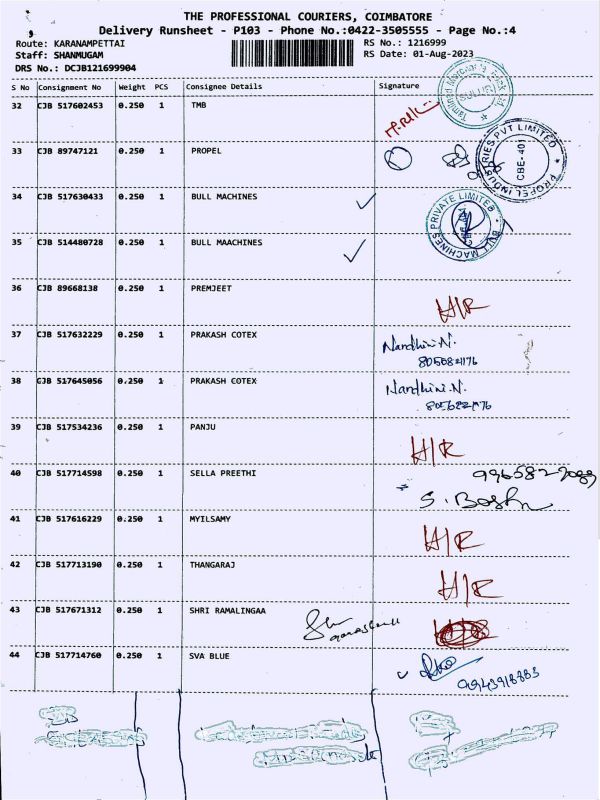 THE PROFESSIONAL COURIERS, COIMBATORE
Delivery Runsheet - P103 - Phone No.:0422-3505555 - Page No.:4
Route: KARANAMPETTAI RS No.: 1216999
Staff: SHANMUGAM RS Date: 01-Aug-2023
DRS No.: DCJB121699904
S No Consignment No Weight PCS Consignee Details Signature
32 CJB 517602453 0.250 1 TMB
33 CJB 89747121 0.250 1 PROPEL
PROPEL INDUSTRIES PVT LIMITED
CBE-401
34 CJB 517630433 0.250 1 BULL MACHINES
BULL MACHINES PRIVATE LIMITED
35 CJB 514480728 0.250 1 BULL MAACHINES
36 CJB 89668138 0.250 1 PREMJEET H/R
37 CJB 517632229 0.250 1 PRAKASH COTEX Nandhini.N.
38 CJB 517645056 0.250 1 PRAKASH COTEX Nandhini.N.
39 CJB 517534236 0.250 1 PANJU H/R
40 CJB 517714598 0.250 1 SELLA PREETHI
41 CJB 517616229 0.250 1 MYILSAMY H/R
42 CJB 517713190 0.250 1 THANGARAJ H/R
43 CJB 517671312 0.250 1 SHRI RAMALINGAA
44 CJB 517714760 0.250 1 SVA BLUE
9943918883